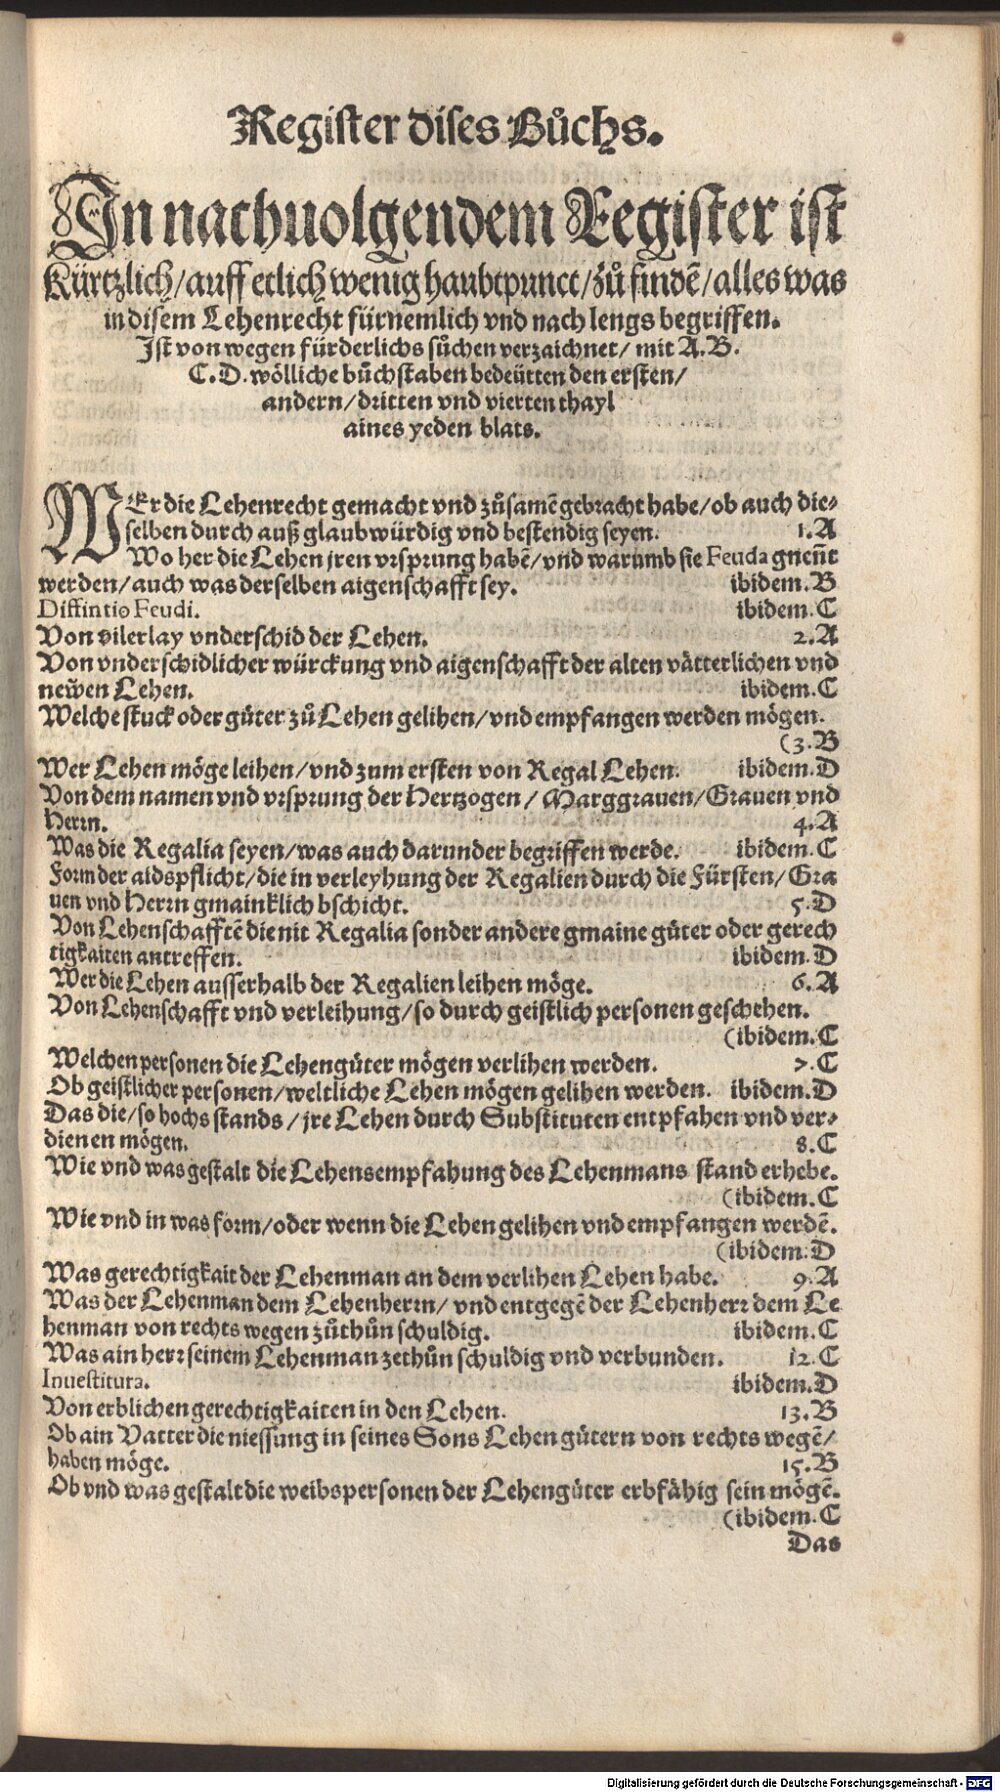 Register dises Bůchs.
In nachuolgendem Register ist
Kürtzlich/auff etlich wenig haubtpunct/zů findē/alles was
in disem Lehenrecht fürnemlich vnd nach lengs begriffen.
Ist von wegen fürderlichs sůchen verzaichnet/ mit A.B.
C.D. wölliche bůchstaben bedeütten den ersten/
andern/dritten vnd vierten thayl
aines yeden blats.
WEr die Lehenrecht gemacht vnd zůsamē gebracht habe/ob auch die-
selben durch auß glaubwürdig vnd bestendig seyen. 1.A
Wo her die Lehen jren vrsprung habē/vnd warumb sie Feuda gneñt
werden/auch was derselben aigenschafft sey. ibidem.B
Diffintio Feudi. ibidem.C
Von vilerlay vnderschid der Lehen. 2.A
Von vnderschidlicher würckung vnd aigenschafft der alten vätterlichen vnd
newen Lehen. ibidem.C
Welche stuck oder güter zů Lehen gelihen/vnd empfangen werden mögen.
(3.B
Wer Lehen möge leihen/vnd zum ersten von Regal Lehen. ibidem.D
Von dem namen vnd vrsprung der Hertzogen/Marggrauen/Grauen vnd
Herrn. 4.A
Was die Regalia seyen/was auch darunder begriffen werde. ibidem.C
Form der aidspflicht/die in verleyhung der Regalien durch die Fürsten/Gra
uen vnd Herrn gmainklich bschicht. 5.D
Von Lehenschafftē die nit Regalia sonder andere gmaine güter oder gerech
tigkaiten antreffen. ibidem.D
Wer die Lehen ausserhalb der Regalien leihen möge. 6.A
Von Lehenschafft vnd verleihung/so durch geistlich personen geschehen.
(ibidem.C
Welchen personen die Lehengüter mögen verlihen werden. 7.C
Ob geistlicher personen/weltliche Lehen mögen gelihen werden. ibidem.D
Das die/so hochs stands/jre Lehen durch Substituten entpfahen vnd ver-
dienen mögen. 8.C
Wie vnd was gestalt die Lehensempfahung des Lehenmans stand erhebe.
(ibidem.C
Wie vnd in was form/oder wenn die Lehen gelihen vnd empfangen werdē.
(ibidem.D
Was gerechtigkait der Lehenman an dem verlihen Lehen habe. 9.A
Was der Lehenman dem Lehenherrn/vnd entgegē der Lehenherr dem Le
henman von rechts wegen zůthůn schuldig. ibidem.C
Was ain herr seinem Lehenman zethůn schuldig vnd verbunden. 12.C
Inuestitura. ibidem.D
Von erblichen gerechtigkaiten in den Lehen. 13.B
Ob ain Vatter die niessung in seines Sons Lehen gütern von rechts wegē/
haben möge. 15.B
Ob vnd was gestalt die weibspersonen der Lehengüter erbfähig sein mögē.
(ibidem.C
Das
Digitalisierung gefördert durch die Deutsche Forschungsgemeinschaft - DFG